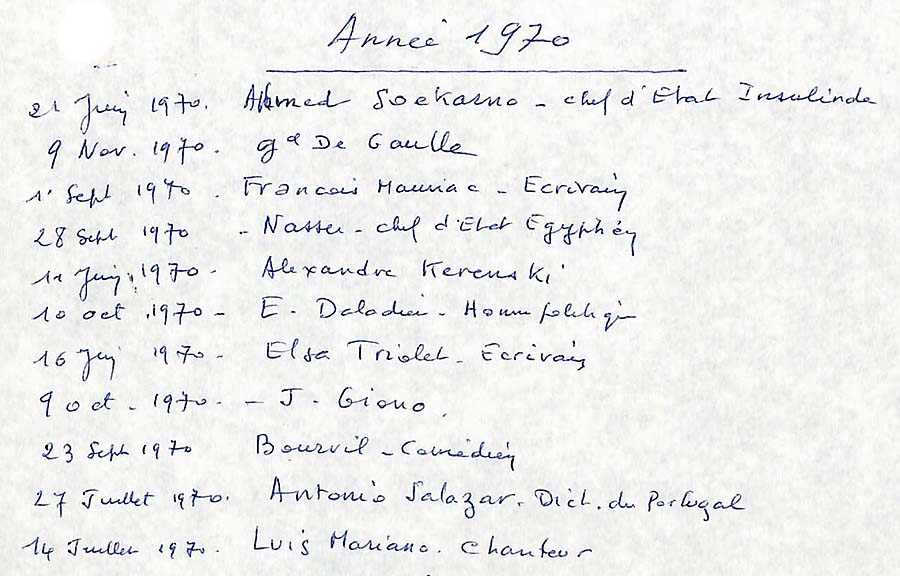 Année 1970
21 Juin 1970. Ahmed Soekarno - chef d'Etat Insulinde
9 Nov. 1970. Gal De Gaulle
1er Sept 1970. Francois Mauriac - Ecrivain
28 Sept 1970 - Nasser - chef d'Etat Egyptien
11 Juin 1970 - Alexandre Kerenski
10 oct 1970 - E. Daladier - Homme politique
16 Juin 1970 - Elsa Triolet - Ecrivain
9 oct - 1970 - J. Giono.
23 Sept 1970 Bourvil - Comédien
27 Juillet 1970. Antonio Salazar. Dict. du Portugal
14 Juillet 1970. Luis Mariano. Chanteur